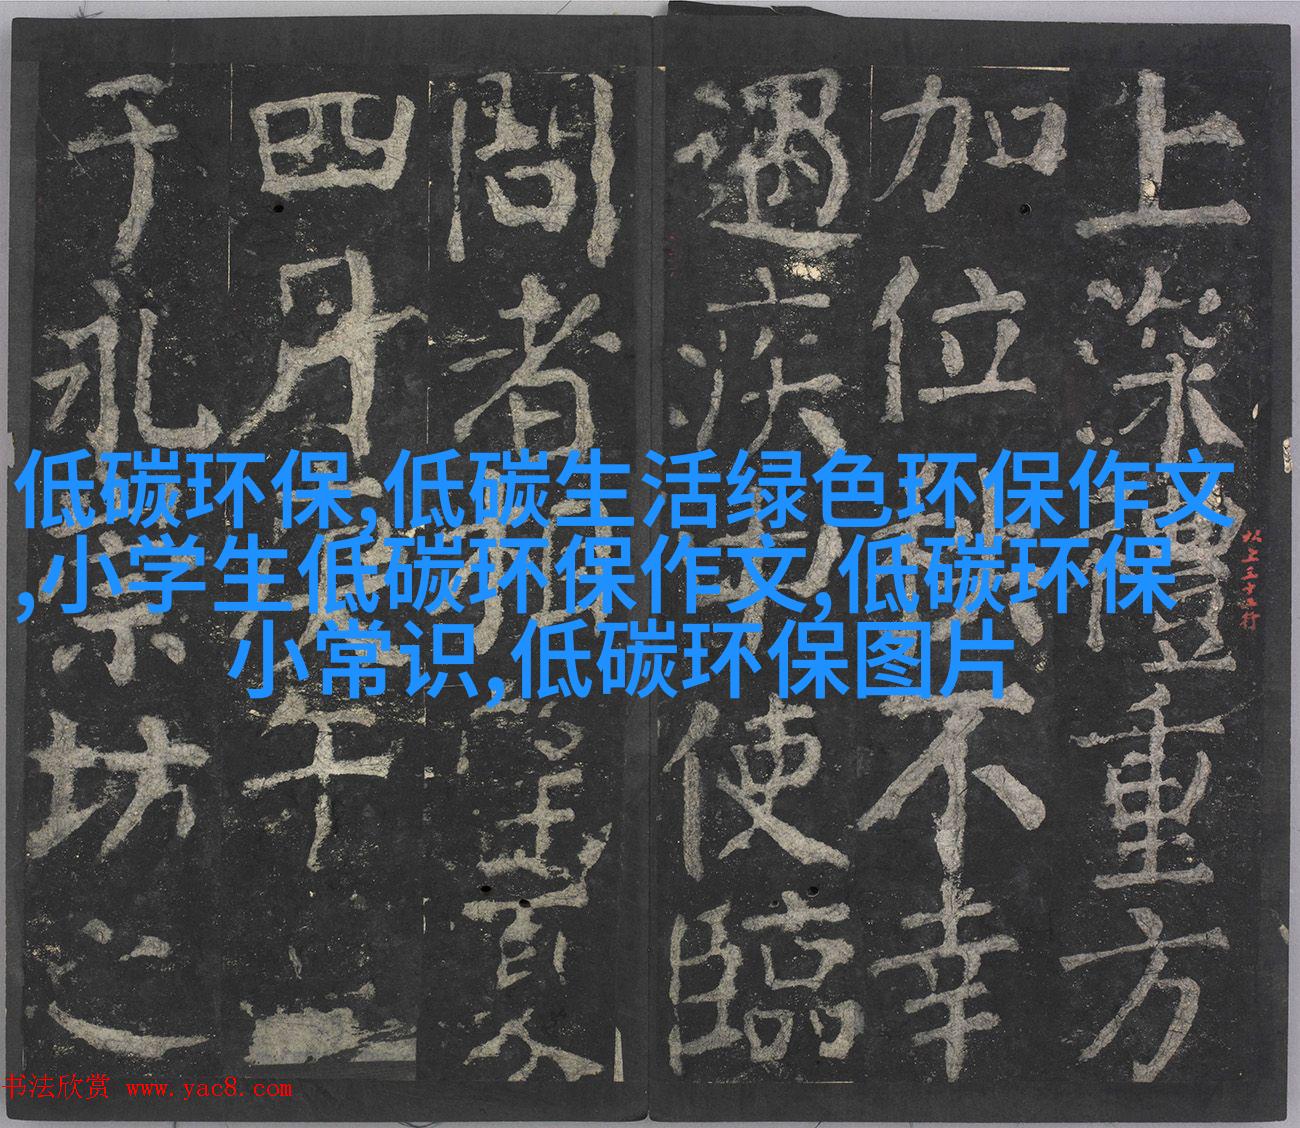 上深禮重方
加位秩不幸
遇疾中使臨
問者相望夏
四月庚午
于永崇坊之
以上五十五行
低碳环保,低碳生活绿色环保作文
,小学生低碳环保作文,低碳环保
小常识,低碳环保图片
书法欣赏 www.yac8.com